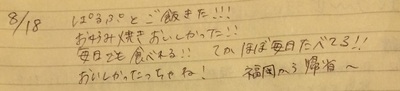 8/18 ぱるぷとご飯きた!!!
お好み焼きおいしかった!!
毎日でも食べれる!! てかほぼ毎日たべてる!!
おいしかったっちゃね! 福岡から帰省〜